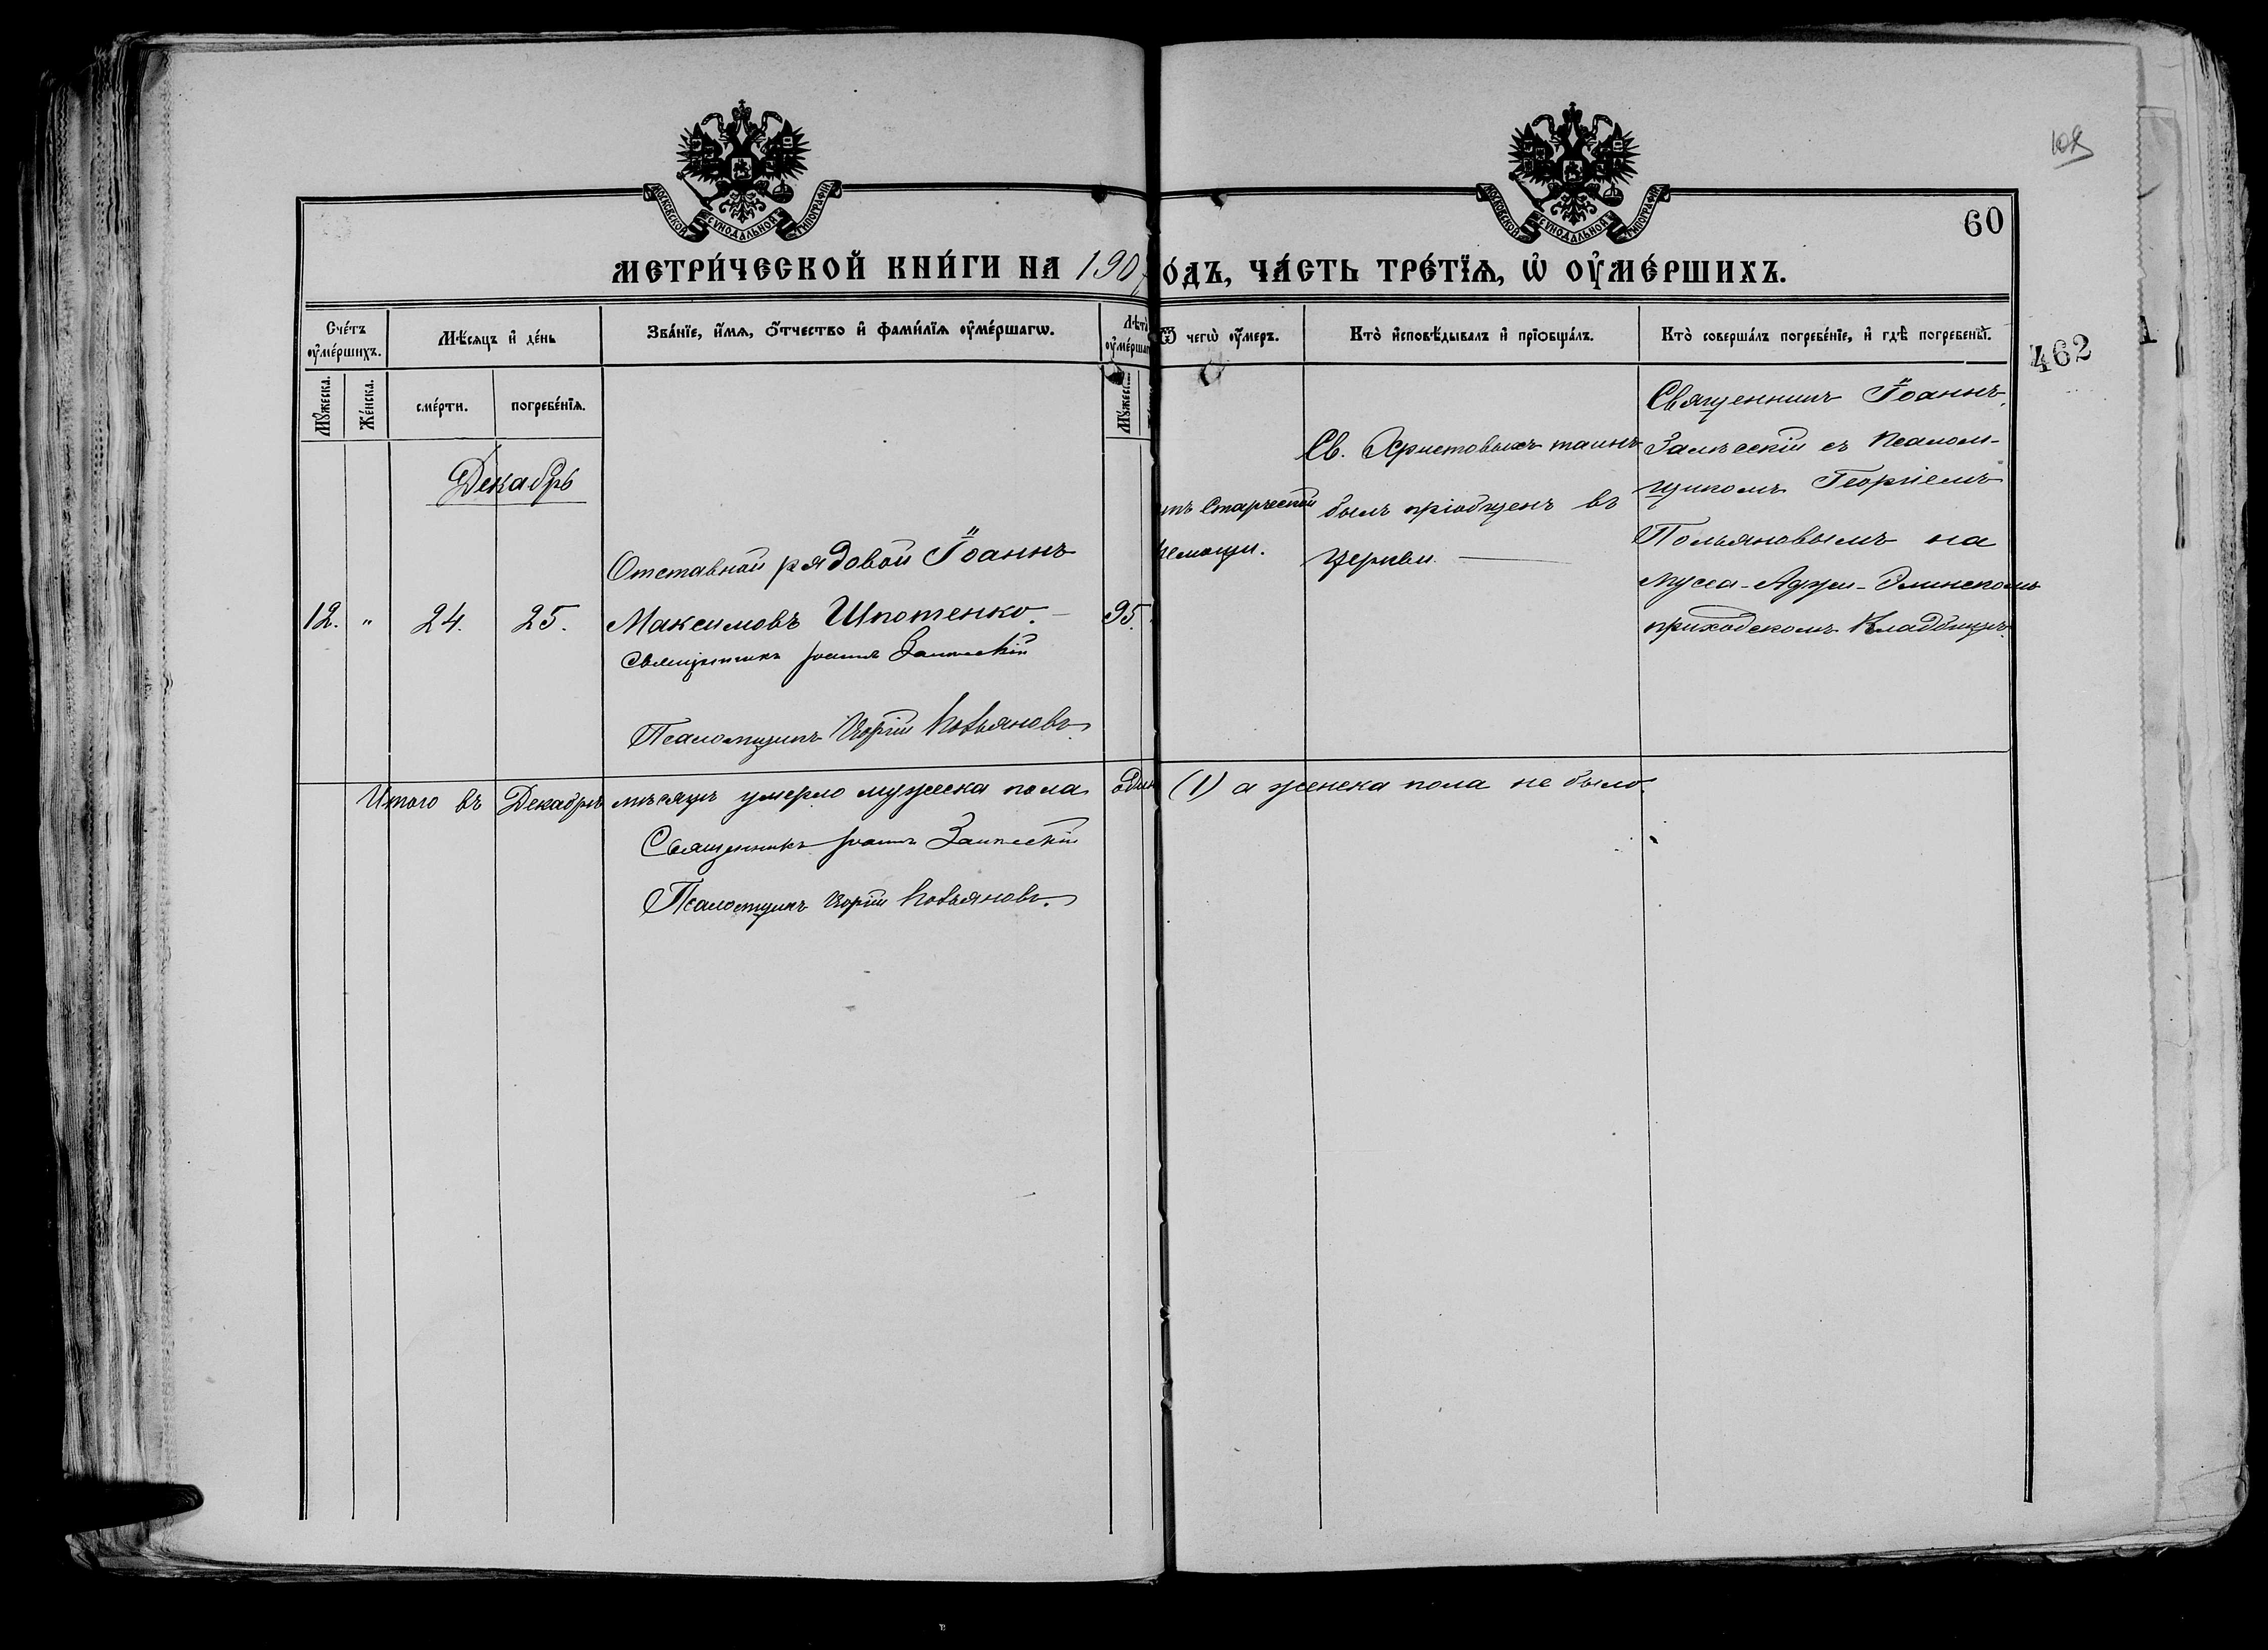 108
МОСКОВСКОЙ СУНОДАЛЬНОЙ ТИПОГРАФІИ
МОСКОВСКОЙ СУНОДАЛЬНОЙ ТИПОГРАФІИ
60
МЕТРИ́ЧЕСКОЙ КНИ́ГИ НА 190
О́ДЪ, ЧА́СТЬ ТРЕ́ТЇѦ, Ѡ҆ ОУ҆МЕ́РШИХЪ.
Сче́тъ оу҆ме́ршихъ.
Мѣ́сѧцъ и҆ де́нь
Зва́нїе, и҆́мѧ, ѻ҆́тчество и҆ фами́лїѧ оу҆ме́ршагѡ.
Лѣта̀ оу҆ме́ршаг
Ѿ чегѡ̀ оу҆́меръ.
Кто̀ и҆сповѣ́дывалъ и҆ прїѡбща́лъ.
Кто̀ соверша́лъ погребе́нїе, и҆ гдѣ̀ погребены̀.
462
Мꙋ́жеска.
Же́нска.
сме́рти.
погребе́нїѧ.
Мꙋ́жеск
Декабрь
12. " 24. 25.
Отставной рядовой Іоаннъ
Максимовъ Шпотенко.
95.
Священникъ Іоаннъ Залѣсскій
Псаломщикъ Георгій Польяновъ
тъ Старческой
немощи.
Св. Христовыхъ таинъ
былъ пріобщенъ въ
церкви.
Священникъ Іоаннъ
Залѣсскій съ псалом-
щикомъ Георгіемъ
Польяновымъ на
Мусса-Аджи-Элинскомъ
приходскомъ кладбищѣ.
Итого въ Декабрѣ мѣсяцѣ умерло мужеска пола один (1) а женска пола не было.
Священникъ Іоаннъ Залѣсскій
Псаломщикъ Георгій Польяновъ.